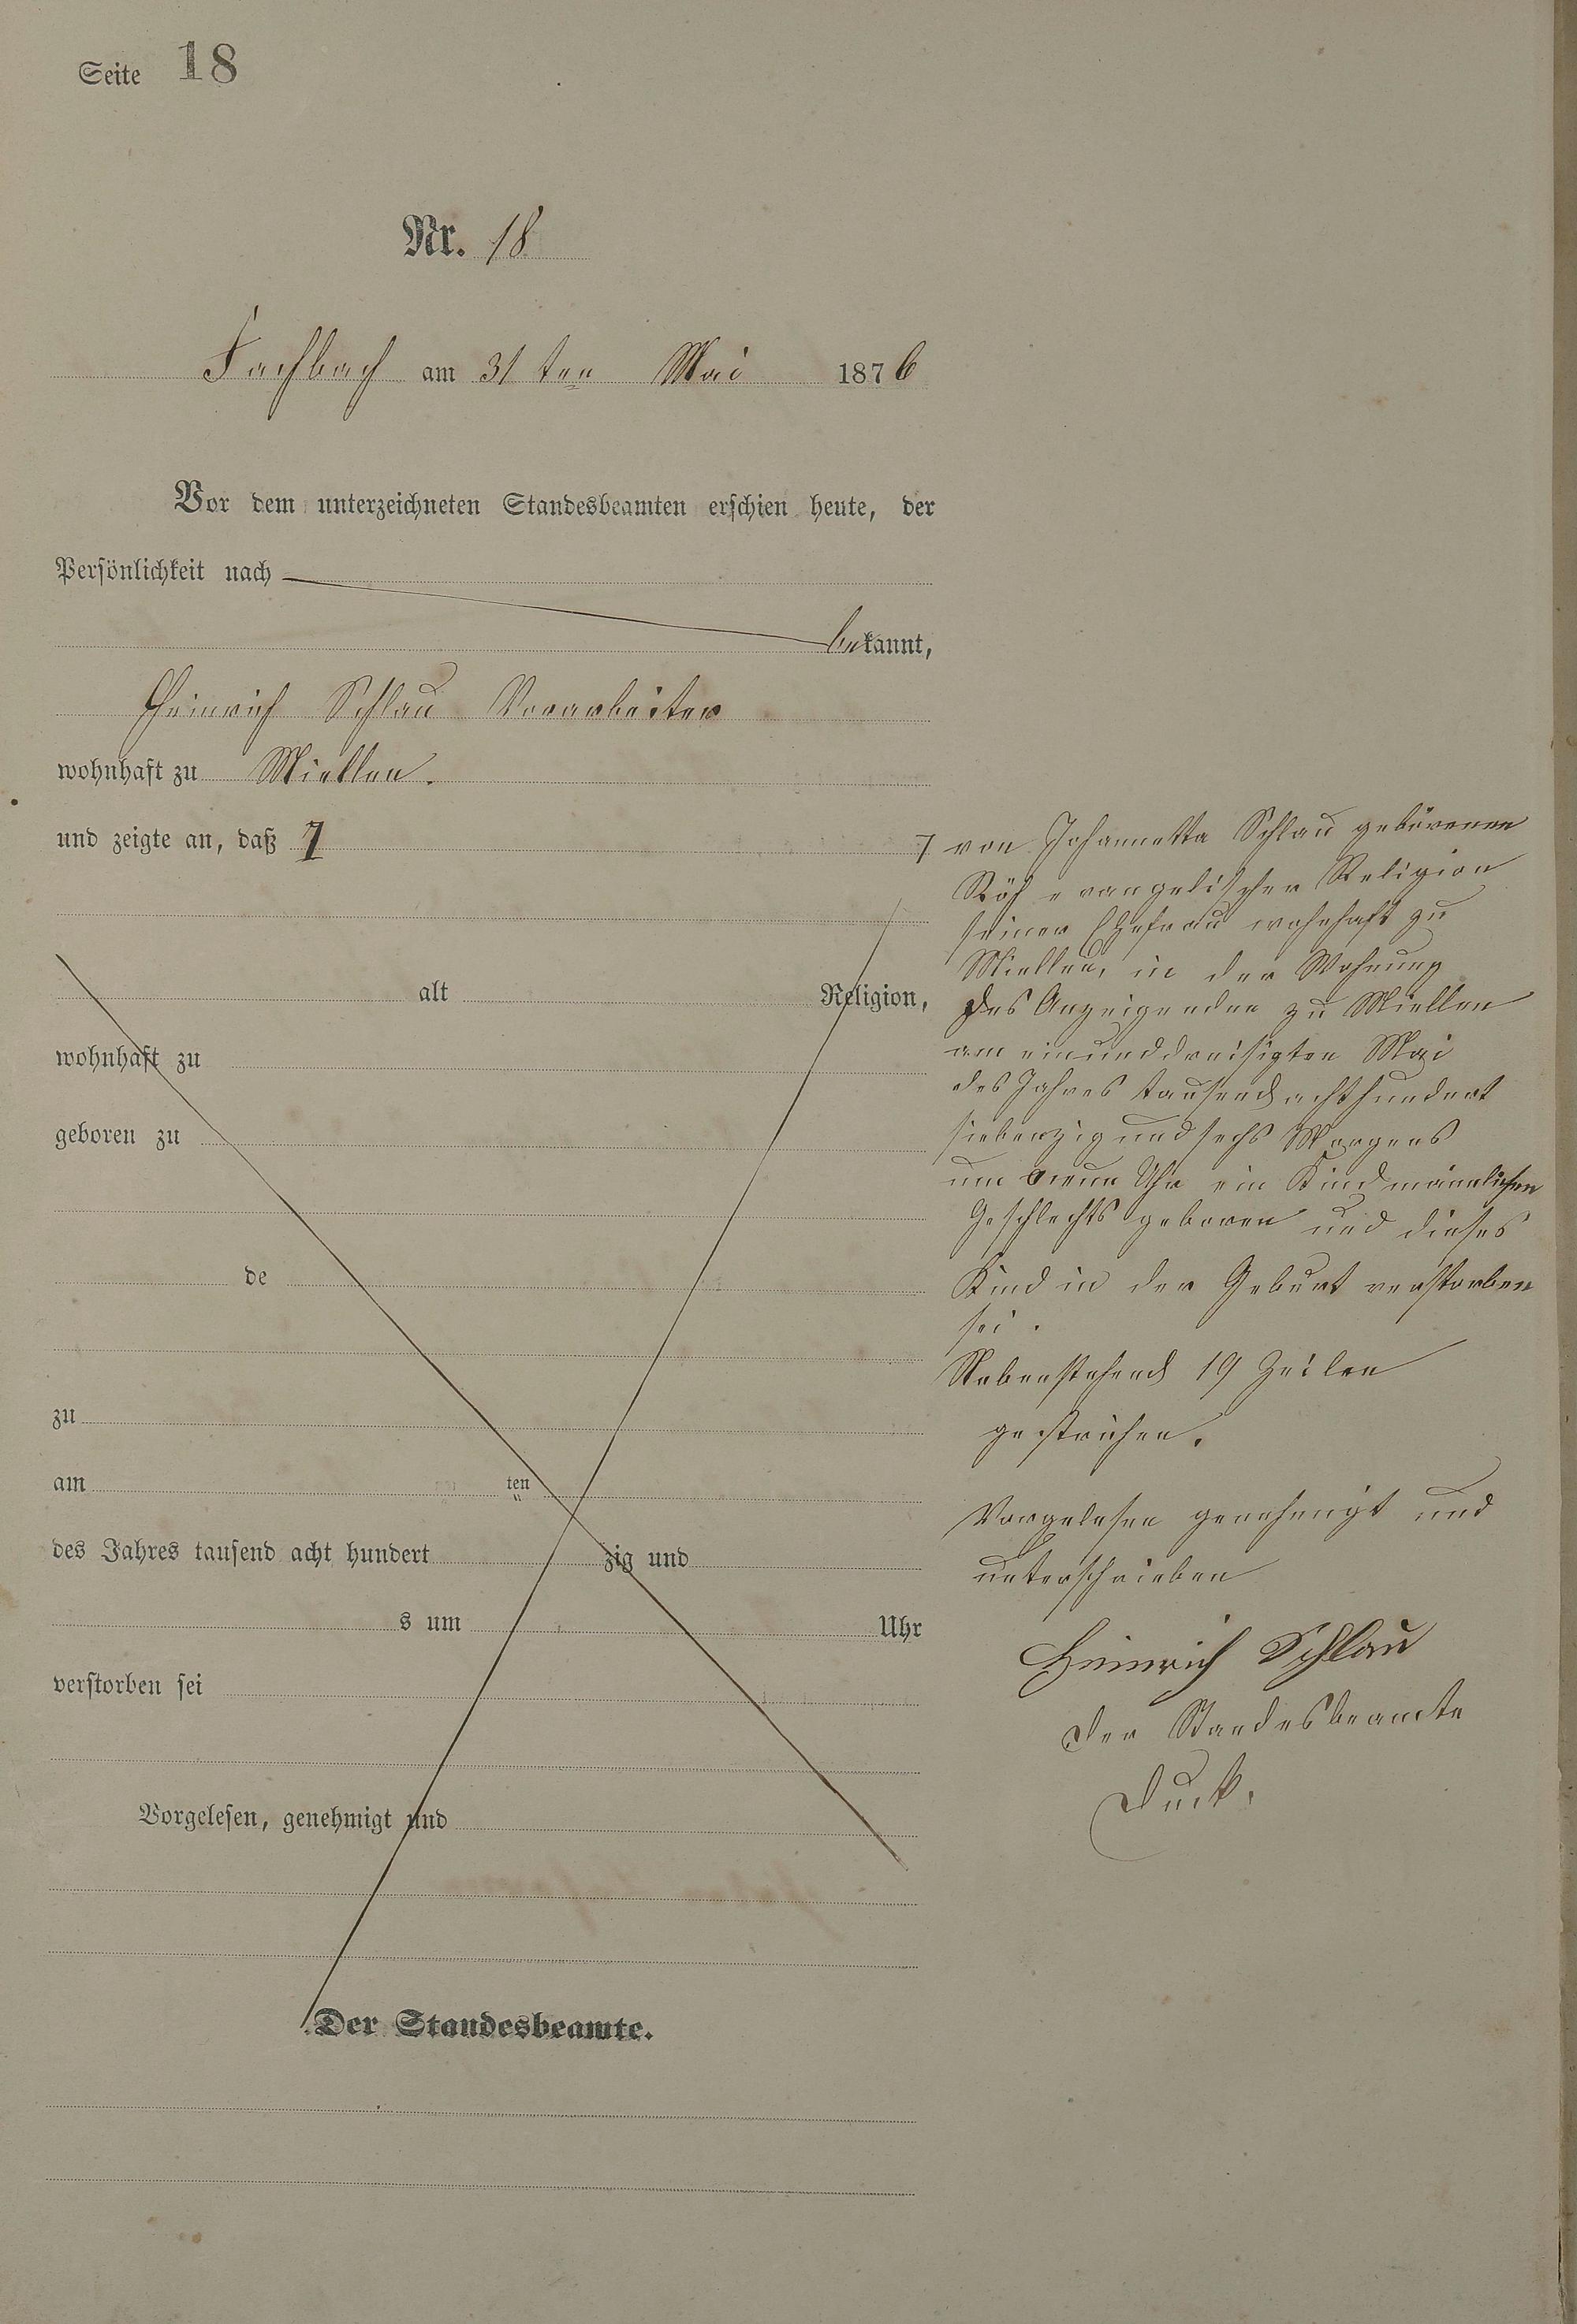 Seite 18
Nr. 18
Fachbach am 31 ten Mai 1876
Vor dem unterzeichneten Standesbeamten erschien heute, der
Persönlichkeit nach
bekannt,
Heinrich Schlau Vorarbeiter
wohnhaft zu Miellen.
und zeigte an, daß
alt Religion,
wohnhaft zu
geboren zu
de
zu
am ten
des Jahres tausend acht hundert zig und
s um Uhr
verstorben sei
Vorgelesen, genehmigt und
Der Standesbeamte.
von Johannetta Schlau geborenen
Röh evangelischer Religion
seiner Ehefrau wohnhaft zu
Miellen, in der Wohnung
des Anzeigenden zu Miellen
am einunddreisigten Mai
des Jahres tausend achthundert
siebenzig und sechs Morgens
um neun Uhr ein Kind männlichen
Geschlechts geboren und dieses
Kind in der Geburt verstorben
sei.
Nebenstehend 19 Zeilen
gestrichen.
Vorgelesen genehmigt und
unterschrieben
Heinrich Schlau
Der Standesbeamte
Duck.